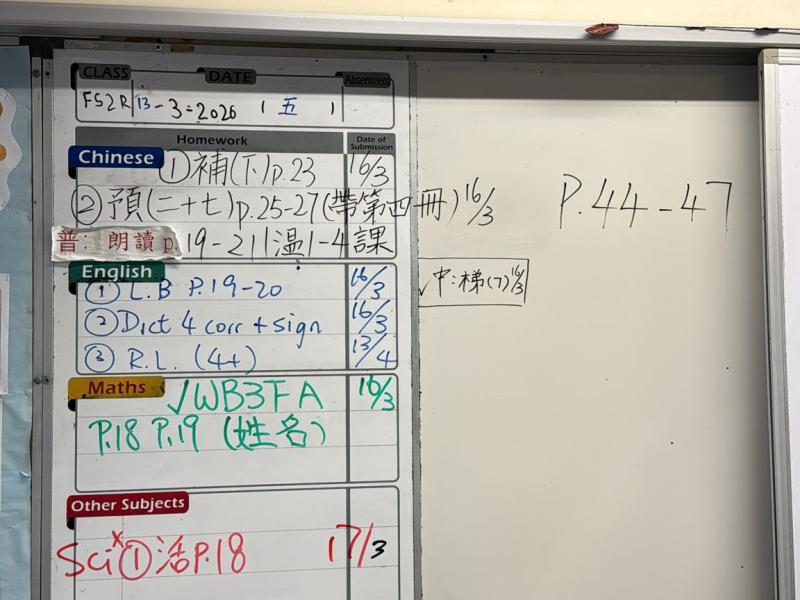 CLASS DATE Absentees
FS2R 13-3-2026 (五)
Homework Date of Submission
Chinese ①補(下)p.23 16/3
②預(二十七)p.25-27(帶第四冊) 16/3
P.44-47
普: 朗讀 p.19-21|溫1-4課
English
① L.B P.19-20 16/3
√中:梯(7) 16/3
② Dict 4 corr + sign 16/3
③ R.L. (4+) 13/4
Maths √WB3FA 16/3
P.18 P.19 (姓名)
Other Subjects
Sci x ①活P.18 17/3